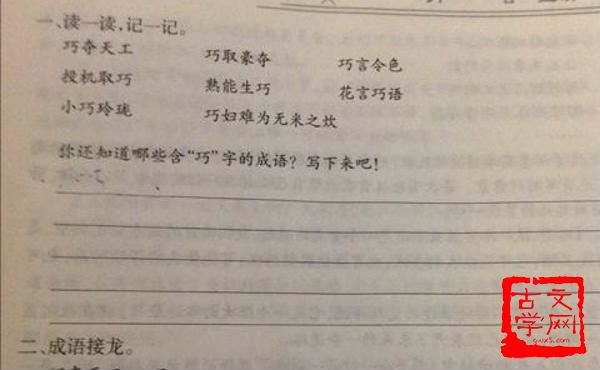 一、读一读，记一记。
巧夺天工 巧取豪夺 巧言令色
投机取巧 熟能生巧 花言巧语
小巧玲珑 巧妇难为无米之炊
你还知道哪些含“巧”字的成语？写下来吧！
二、成语接龙。
古文
学网
gwx5.com